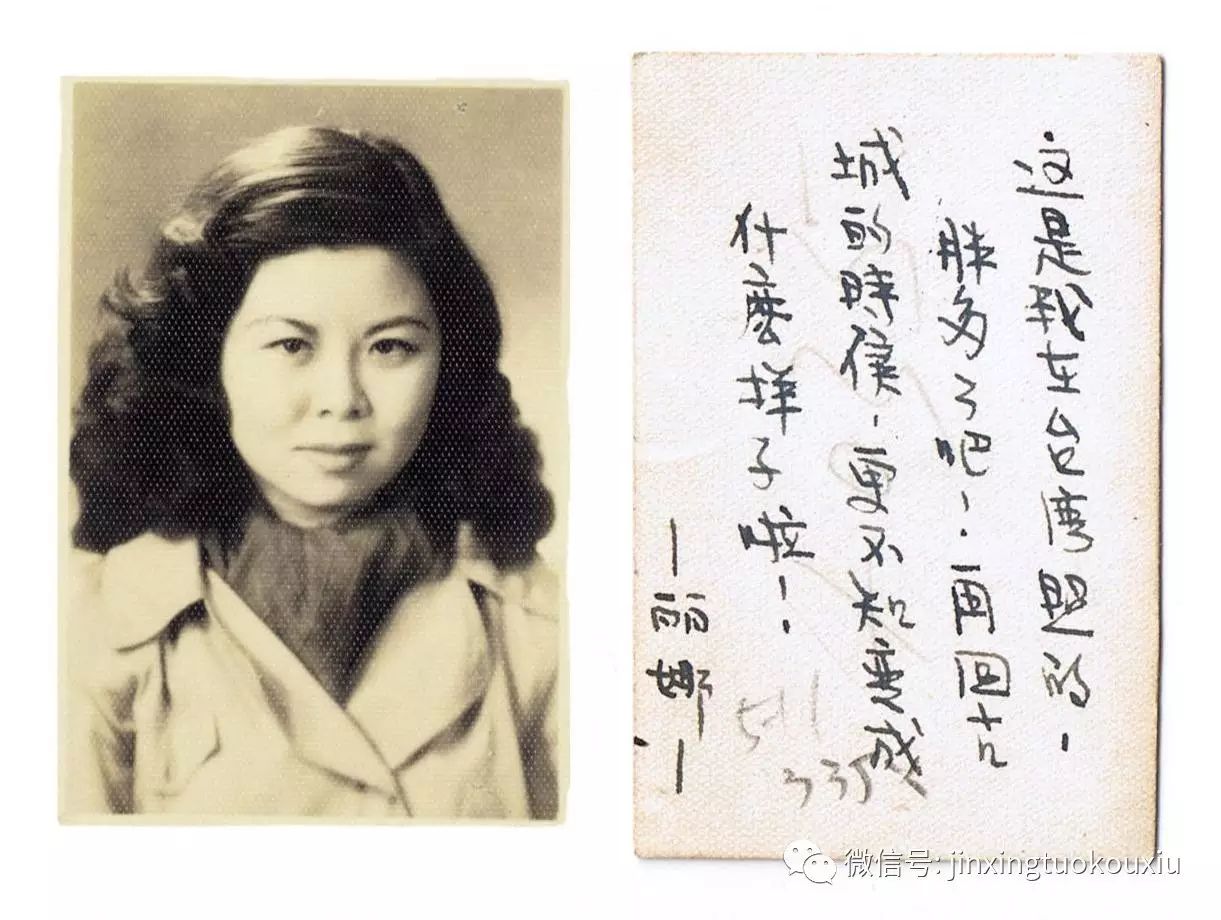 这是我在台湾照的、
胖多了吧！再回古
城的時侯、更不知变成
什麼样子啦！
—丽娜—
511
335
微信号: jinxingtuokouxiu